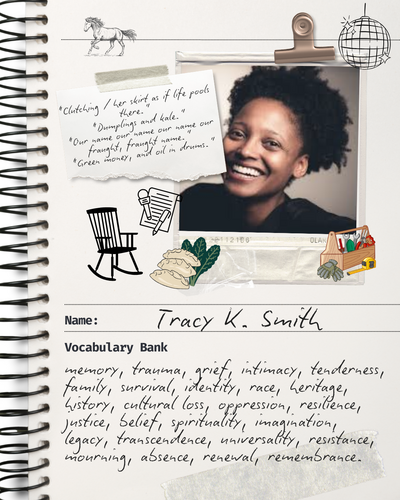 "Clutching / her skirt as if life pools
there."
"Dumplings and kale."
"Our name our name our name our
fraught, fraught name."
"Green money, and oil in drums."
Name: Tracy K. Smith
Vocabulary Bank
memory, trauma, grief, intimacy, tenderness,
family, survival, identity, race, heritage,
history, cultural loss, oppression, resilience,
justice, belief, spirituality, imagination,
legacy, transcendence, universality, resistance,
mourning, absence, renewal, remembrance.